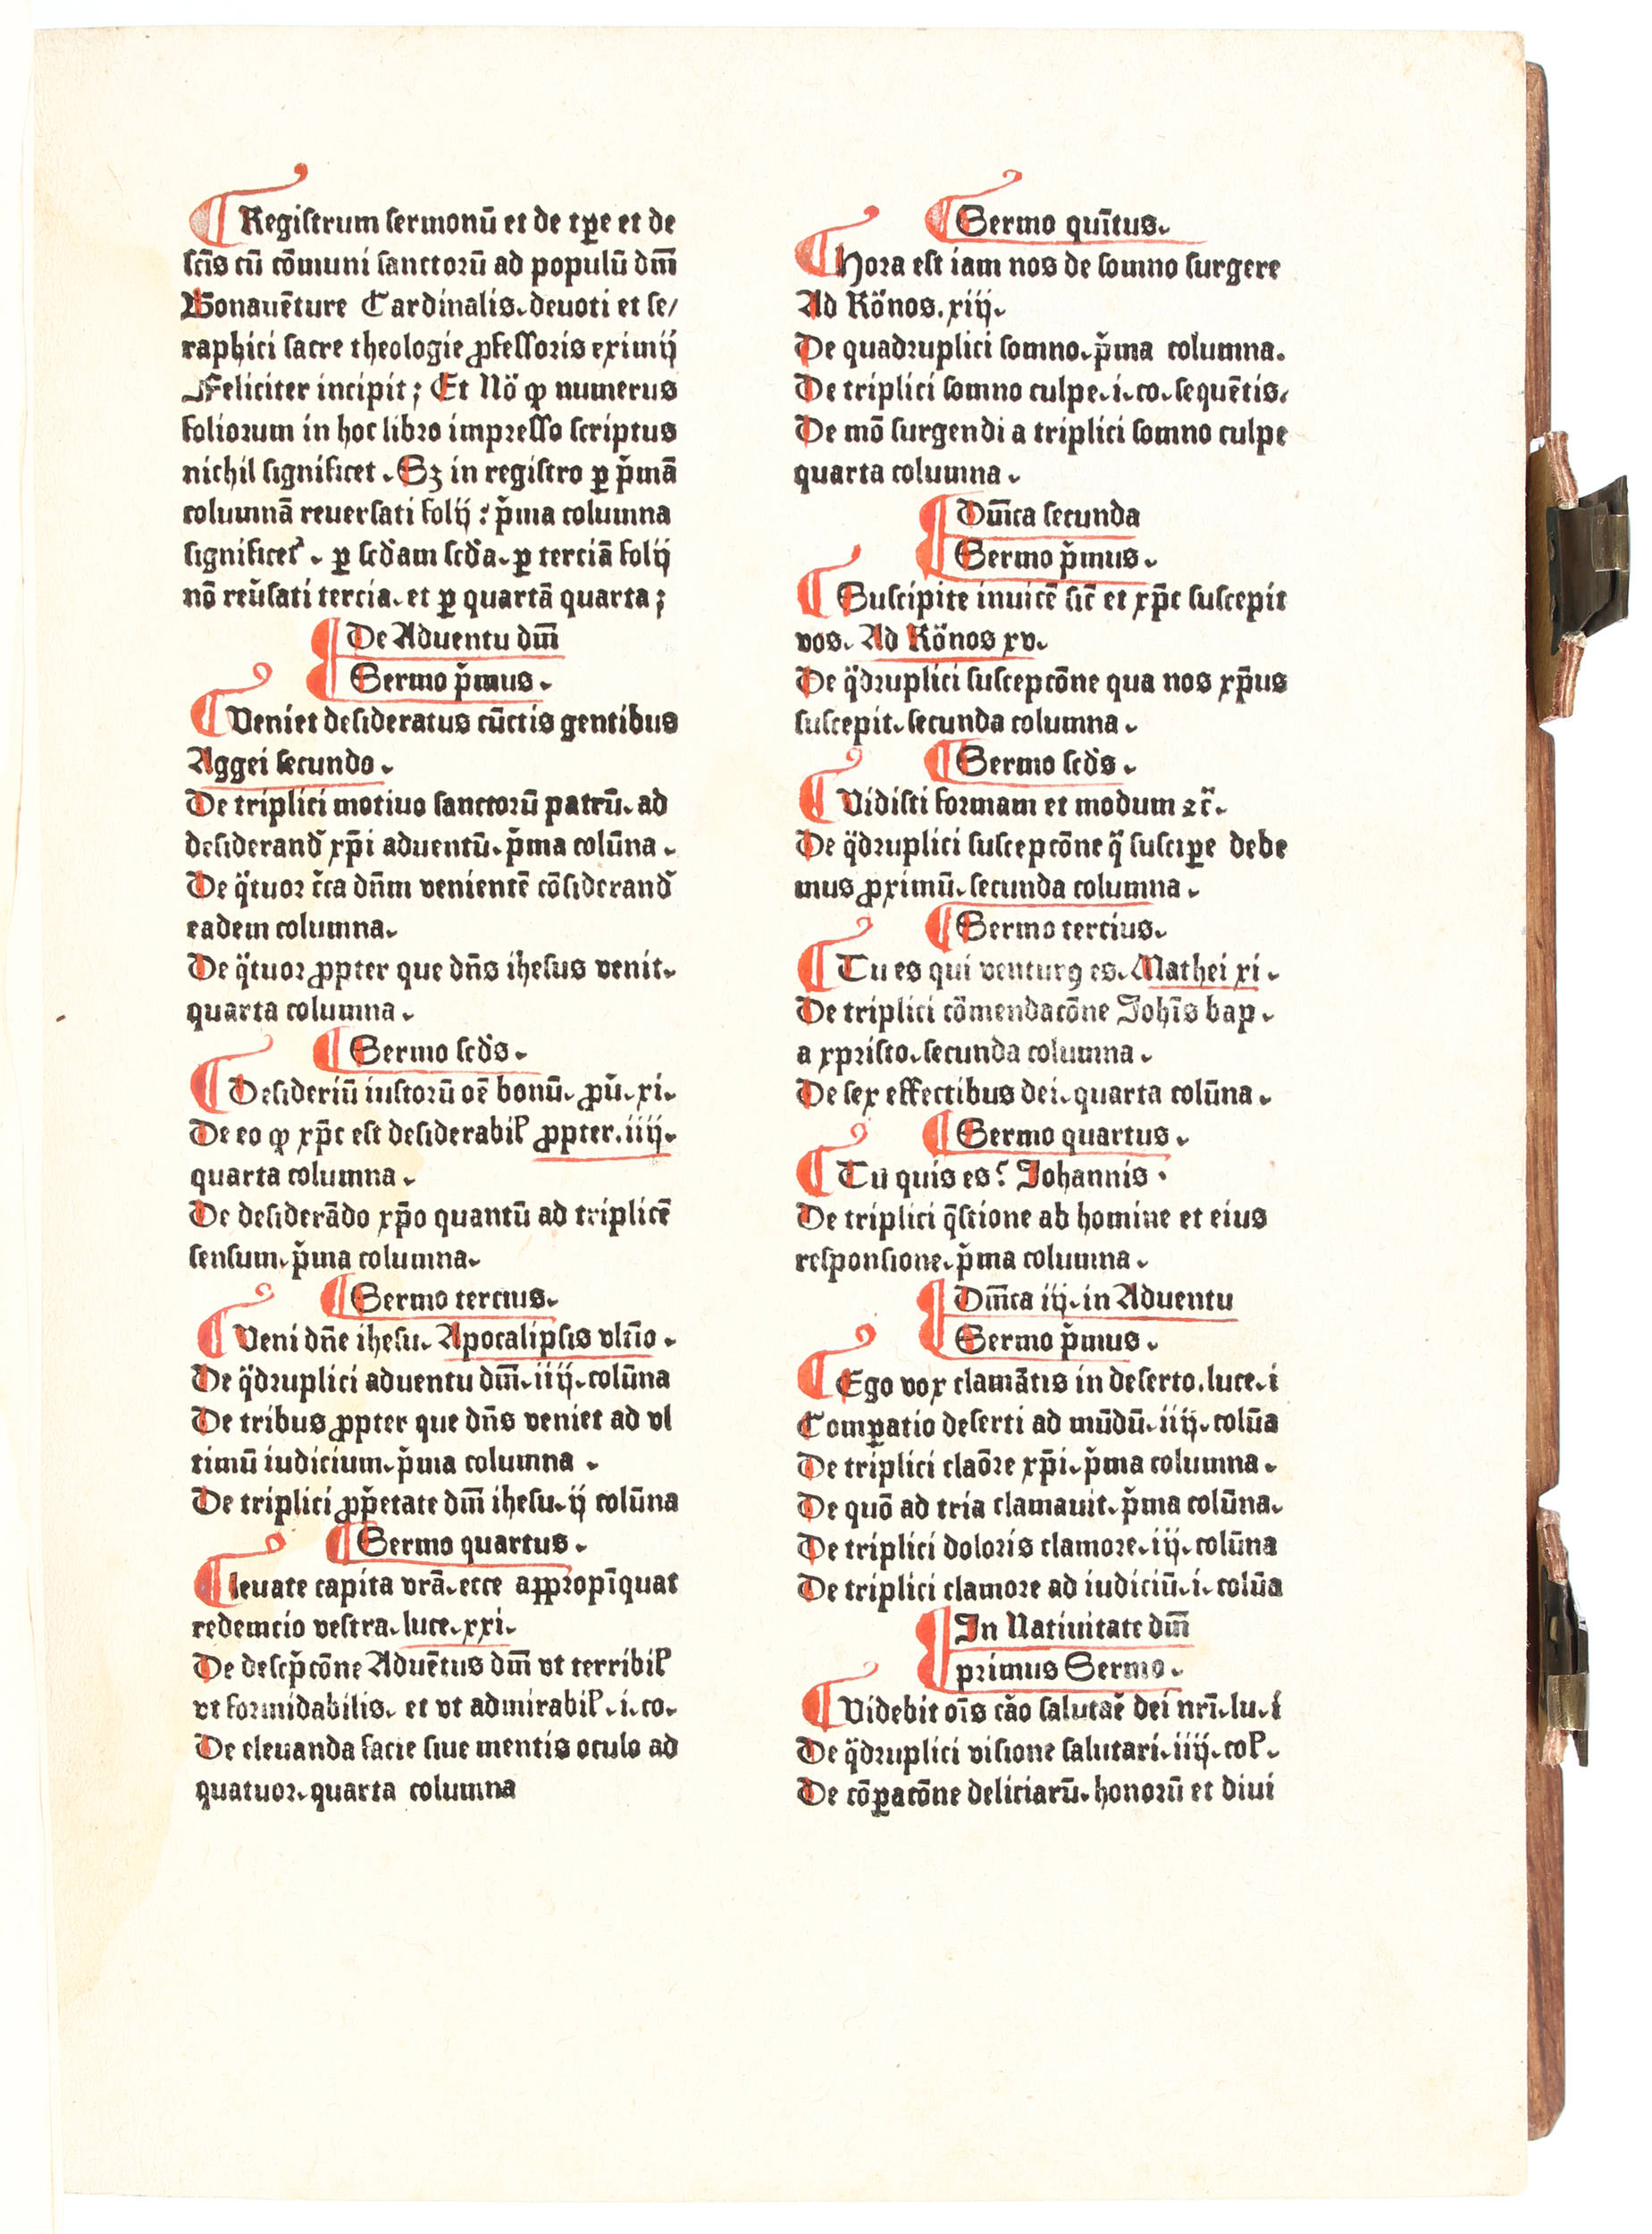 Registrum sermonū et de tꝑe et de
sctīs cū cōmuni sanctorū ad populū dnī
Bonauēture Cardinalis. deuoti et se/
raphici sacre theologie ꝓfessoris eximij
Feliciter incipit; Et Nö ꝙ numerus
foliorum in hoc libro impresso scriptus
nichil significet. Sꝫ in registro ꝑ p̄mā
columnā reuersati folij: p̄ma columna
significet᷑. ꝑ scd̄am scd̄a. ꝑ terciā folij
nō reūsati tercia. et ꝑ quartā quarta;
De Aduentu dnī
Sermo p̄mus.
Veniet desideratus cūctis gentibus
Aggei secundo.
De triplici motiuo sanctorū patrū. ad
desiderand̄ xp̄i aduentū. p̄ma colūna.
De q̈tuor c̄ca dn̄m venientē cōsiderand̄
eadem columna.
De q̈tuor ꝓpter que dn̄s ihesus venit.
quarta columna.
Sermo scd̄s.
Desideriū iustorū oē bonū. ꝓū. xi.
De eo ꝙ xp̄c est desiderabil̄ ꝓpter. iiij.
quarta columna.
De desiderādo xp̄o quantū ad triplicē
sensum. p̄ma columna.
Sermo tercius.
Veni dn̄e ihesu. Apocalipsis vltīo.
De q̈druplici aduentu dnī. iiij. colūna
De tribus ꝓpter que dn̄s veniet ad vl
timū iudicium. p̄ma columna.
De triplici ꝓp̄etate dnī ihesu. ij colūna
Sermo quartus.
leuate capita vrā. ecce appropīquat
redemcio vestra. luce. xxi.
De descp̄cōne Aduētus dnī vt terribil̄
vt formidabilis. et vt admirabil̄. i. co.
De eleuanda facie siue mentis oculo ad
quatuor. quarta columna
Sermo quītus.
Hora est iam nos de somno surgere
Ad Rönos. xiij.
De quadruplici somno. p̄ma columna.
De triplici somno culpe. i. co. sequētis.
De mō surgendi a triplici somno culpe
quarta columna.
Dnīca secunda
Sermo p̄mus.
Suscipite inuicē sic̄ et xp̄c suscepit
vos. Ad Rönos xv.
De q̈druplici suscepcōne qua nos xp̄us
suscepit. secunda columna.
Sermo scd̄s.
Vidisti formam et modum ⁊c̄.
De q̈druplici suscepcōne q̈ susciꝑe debe
mus ꝓximū. secunda columna.
Sermo tercius.
Tu es qui venturꝰ es. Mathei xi.
De triplici cōmendacōne Johīs bap.
a xpristo. secunda columna.
De sex effectibus dei. quarta colūna.
Sermo quartus.
Tu quis es? Johannis.
De triplici q̄stione ab homine et eius
responsione. p̄ma columna.
Dnīca iij. in Aduentu
Sermo p̄mus.
Ego vox clamātis in deserto. luce. i
Comꝑatio deserti ad mūdū. iiij. colūa
De triplici claōre xp̄i. p̄ma columna.
De quō ad tria clamauit. p̄ma colūna.
De triplici doloris clamore. iij. colūna
De triplici clamore ad iudiciū. i. colūa
In Natiuitate dnī
primus Sermo.
Videbit oīs cāo salutaē dei nrī. lu. i
De q̈druplici visione salutari. iiij. col̄.
De cōꝑacōne deliciarū. honorū et diui